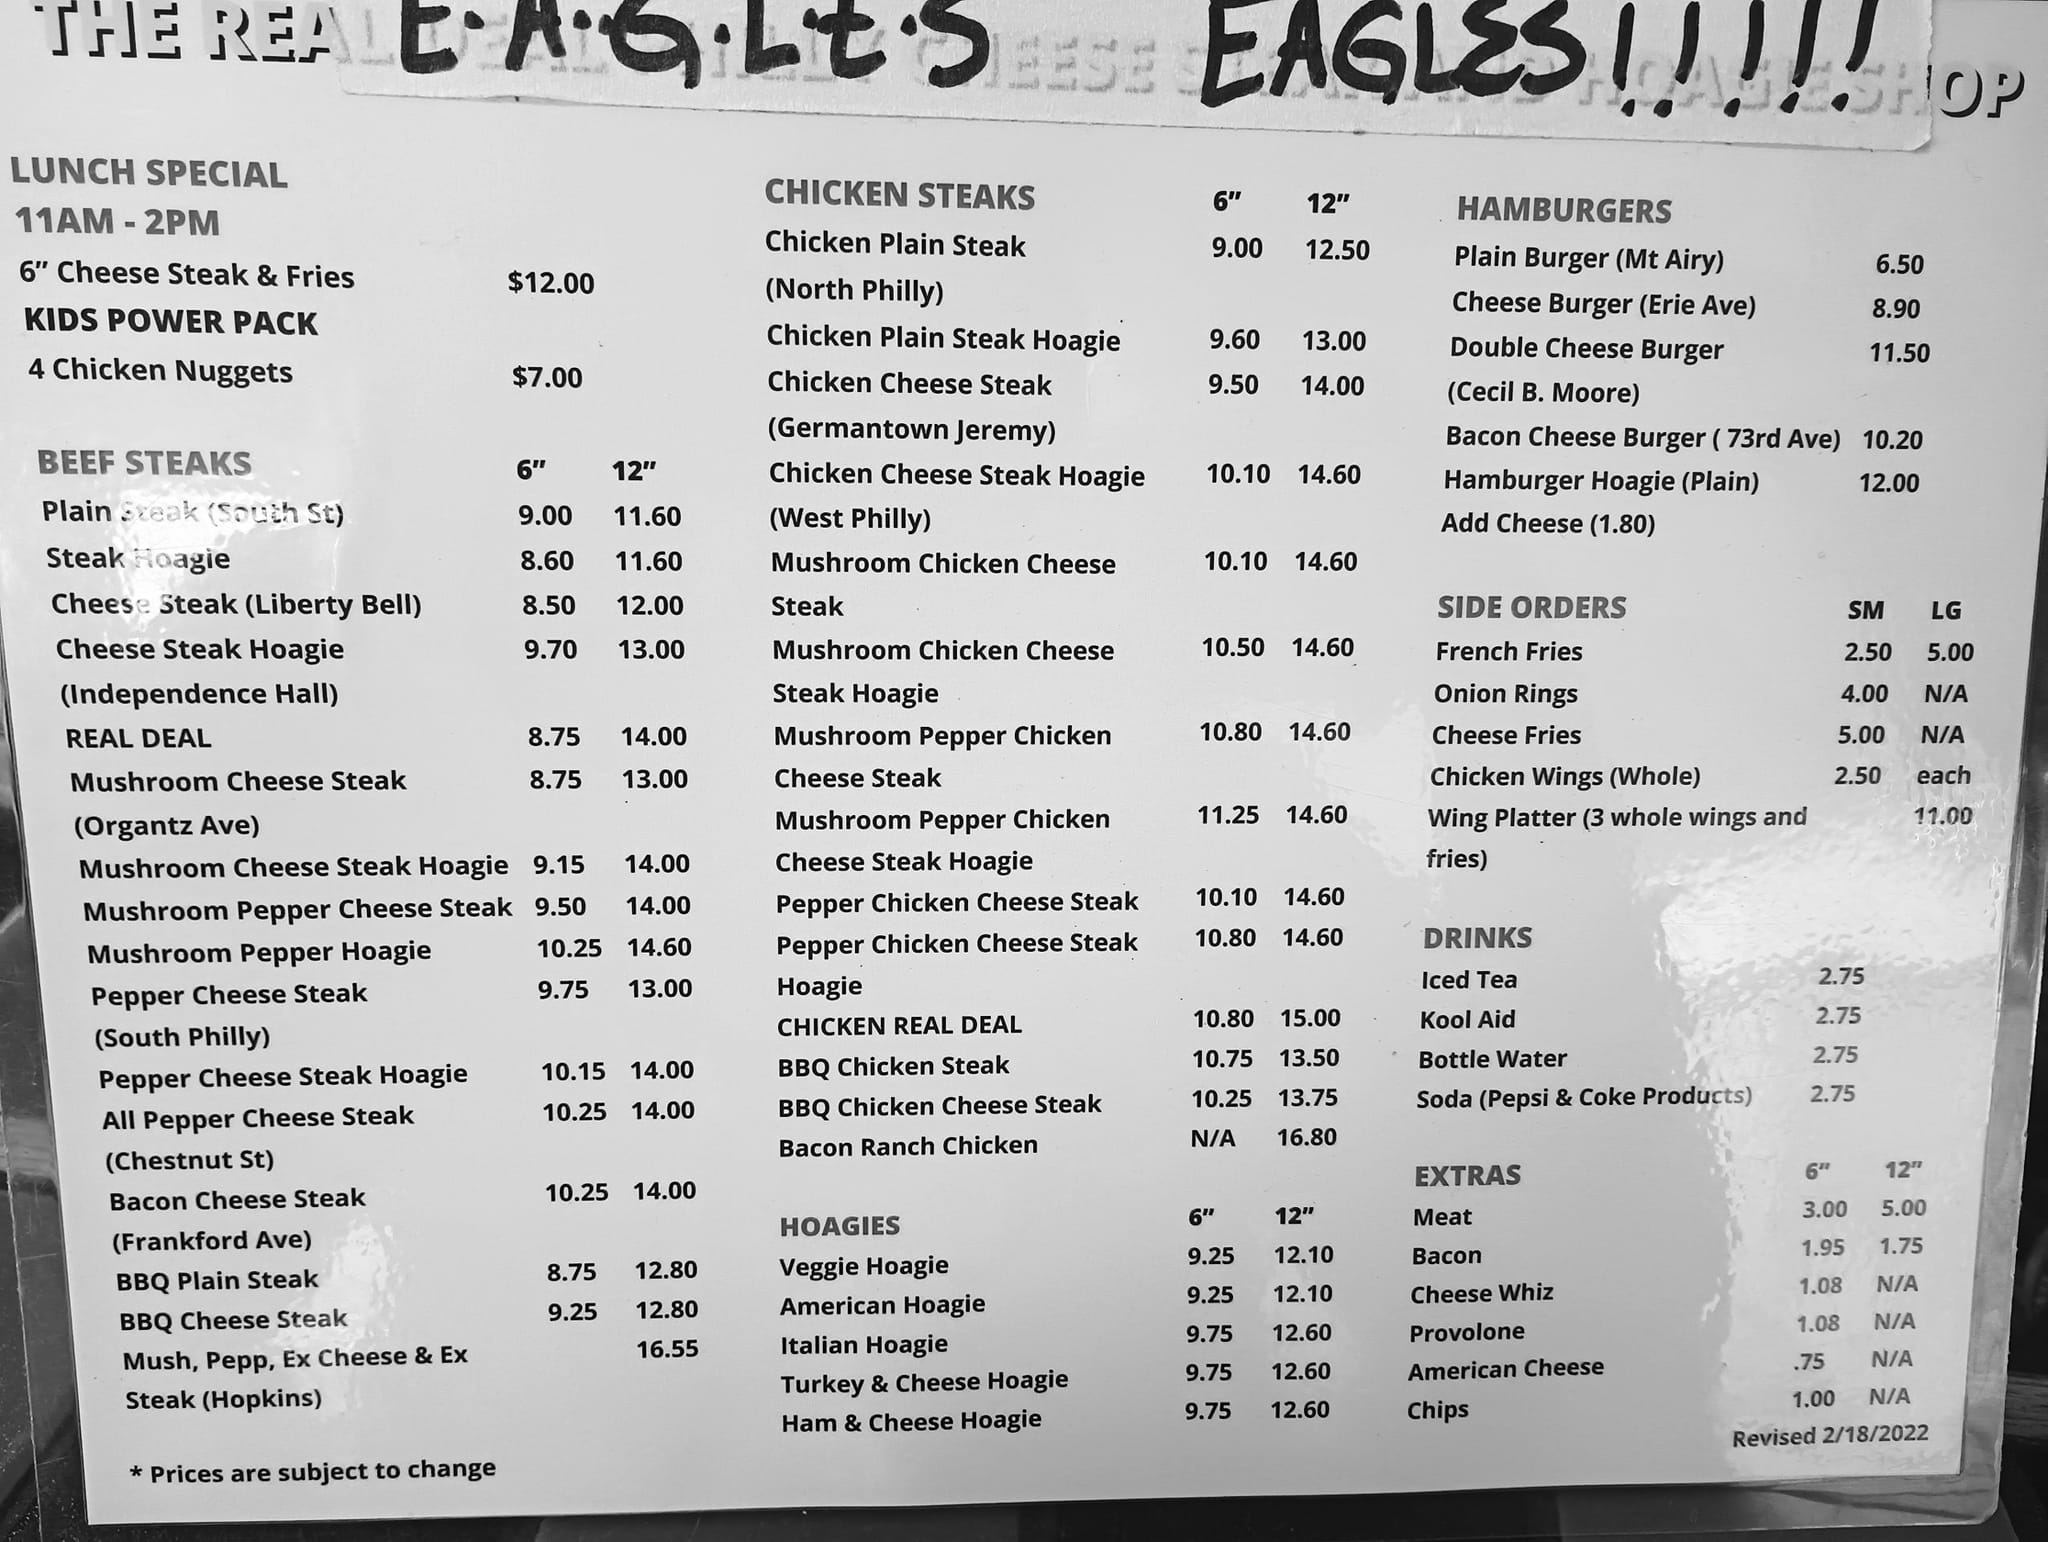 THE REAL DEAL PHILLY CHEESE STEAK AND HOAGIE SHOP
E·A·G·L·E·S EAGLES!!!!!!
LUNCH SPECIAL
11AM - 2PM
6” Cheese Steak & Fries $12.00
KIDS POWER PACK
4 Chicken Nuggets $7.00
BEEF STEAKS 6” 12”
Plain Steak (South St) 9.00 11.60
Steak Hoagie 8.60 11.60
Cheese Steak (Liberty Bell) 8.50 12.00
Cheese Steak Hoagie 9.70 13.00
(Independence Hall)
REAL DEAL 8.75 14.00
Mushroom Cheese Steak 8.75 13.00
(Organtz Ave)
Mushroom Cheese Steak Hoagie 9.15 14.00
Mushroom Pepper Cheese Steak 9.50 14.00
Mushroom Pepper Hoagie 10.25 14.60
Pepper Cheese Steak 9.75 13.00
(South Philly)
Pepper Cheese Steak Hoagie 10.15 14.00
All Pepper Cheese Steak 10.25 14.00
(Chestnut St)
Bacon Cheese Steak 10.25 14.00
(Frankford Ave)
BBQ Plain Steak 8.75 12.80
BBQ Cheese Steak 9.25 12.80
Mush, Pepp, Ex Cheese & Ex 16.55
Steak (Hopkins)
* Prices are subject to change
CHICKEN STEAKS 6” 12”
Chicken Plain Steak 9.00 12.50
(North Philly)
Chicken Plain Steak Hoagie 9.60 13.00
Chicken Cheese Steak 9.50 14.00
(Germantown Jeremy)
Chicken Cheese Steak Hoagie 10.10 14.60
(West Philly)
Mushroom Chicken Cheese 10.10 14.60
Steak
Mushroom Chicken Cheese 10.50 14.60
Steak Hoagie
Mushroom Pepper Chicken 10.80 14.60
Cheese Steak
Mushroom Pepper Chicken 11.25 14.60
Cheese Steak Hoagie
Pepper Chicken Cheese Steak 10.10 14.60
Pepper Chicken Cheese Steak 10.80 14.60
Hoagie
CHICKEN REAL DEAL 10.80 15.00
BBQ Chicken Steak 10.75 13.50
BBQ Chicken Cheese Steak 10.25 13.75
Bacon Ranch Chicken N/A 16.80
HOAGIES 6” 12”
Veggie Hoagie 9.25 12.10
American Hoagie 9.25 12.10
Italian Hoagie 9.75 12.60
Turkey & Cheese Hoagie 9.75 12.60
Ham & Cheese Hoagie 9.75 12.60
HAMBURGERS
Plain Burger (Mt Airy) 6.50
Cheese Burger (Erie Ave) 8.90
Double Cheese Burger 11.50
(Cecil B. Moore)
Bacon Cheese Burger ( 73rd Ave) 10.20
Hamburger Hoagie (Plain) 12.00
Add Cheese (1.80)
SIDE ORDERS SM LG
French Fries 2.50 5.00
Onion Rings 4.00 N/A
Cheese Fries 5.00 N/A
Chicken Wings (Whole) 2.50 each
Wing Platter (3 whole wings and 11.00
fries)
DRINKS
Iced Tea 2.75
Kool Aid 2.75
Bottle Water 2.75
Soda (Pepsi & Coke Products) 2.75
EXTRAS 6” 12”
Meat 3.00 5.00
Bacon 1.95 1.75
Cheese Whiz 1.08 N/A
Provolone 1.08 N/A
American Cheese .75 N/A
Chips 1.00 N/A
Revised 2/18/2022